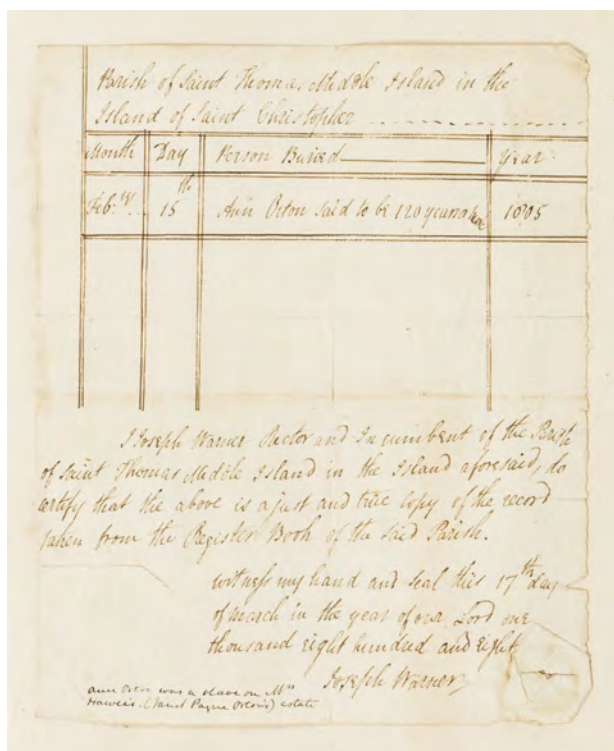 Parish of Saint Thomas Middle Island in the
Island of Saint Christopher
Month Day Person Buried Year
Feb.ry 15th Ann Orton said to be 120 years 1805
I Joseph Warner Rector and Incumbent of the Parish
of Saint Thomas Middle Island in the Island aforesaid, do
certify that the above is a just and true Copy of the record
taken from the Register Book of the said Parish.
witness my hand and seal this 17th day
of march in the year of our Lord one
thousand eight hundred and eight
Joseph Warner
Ann Orton was a slave on Mrs
Haweis. (Janet Payne Orton's) estate